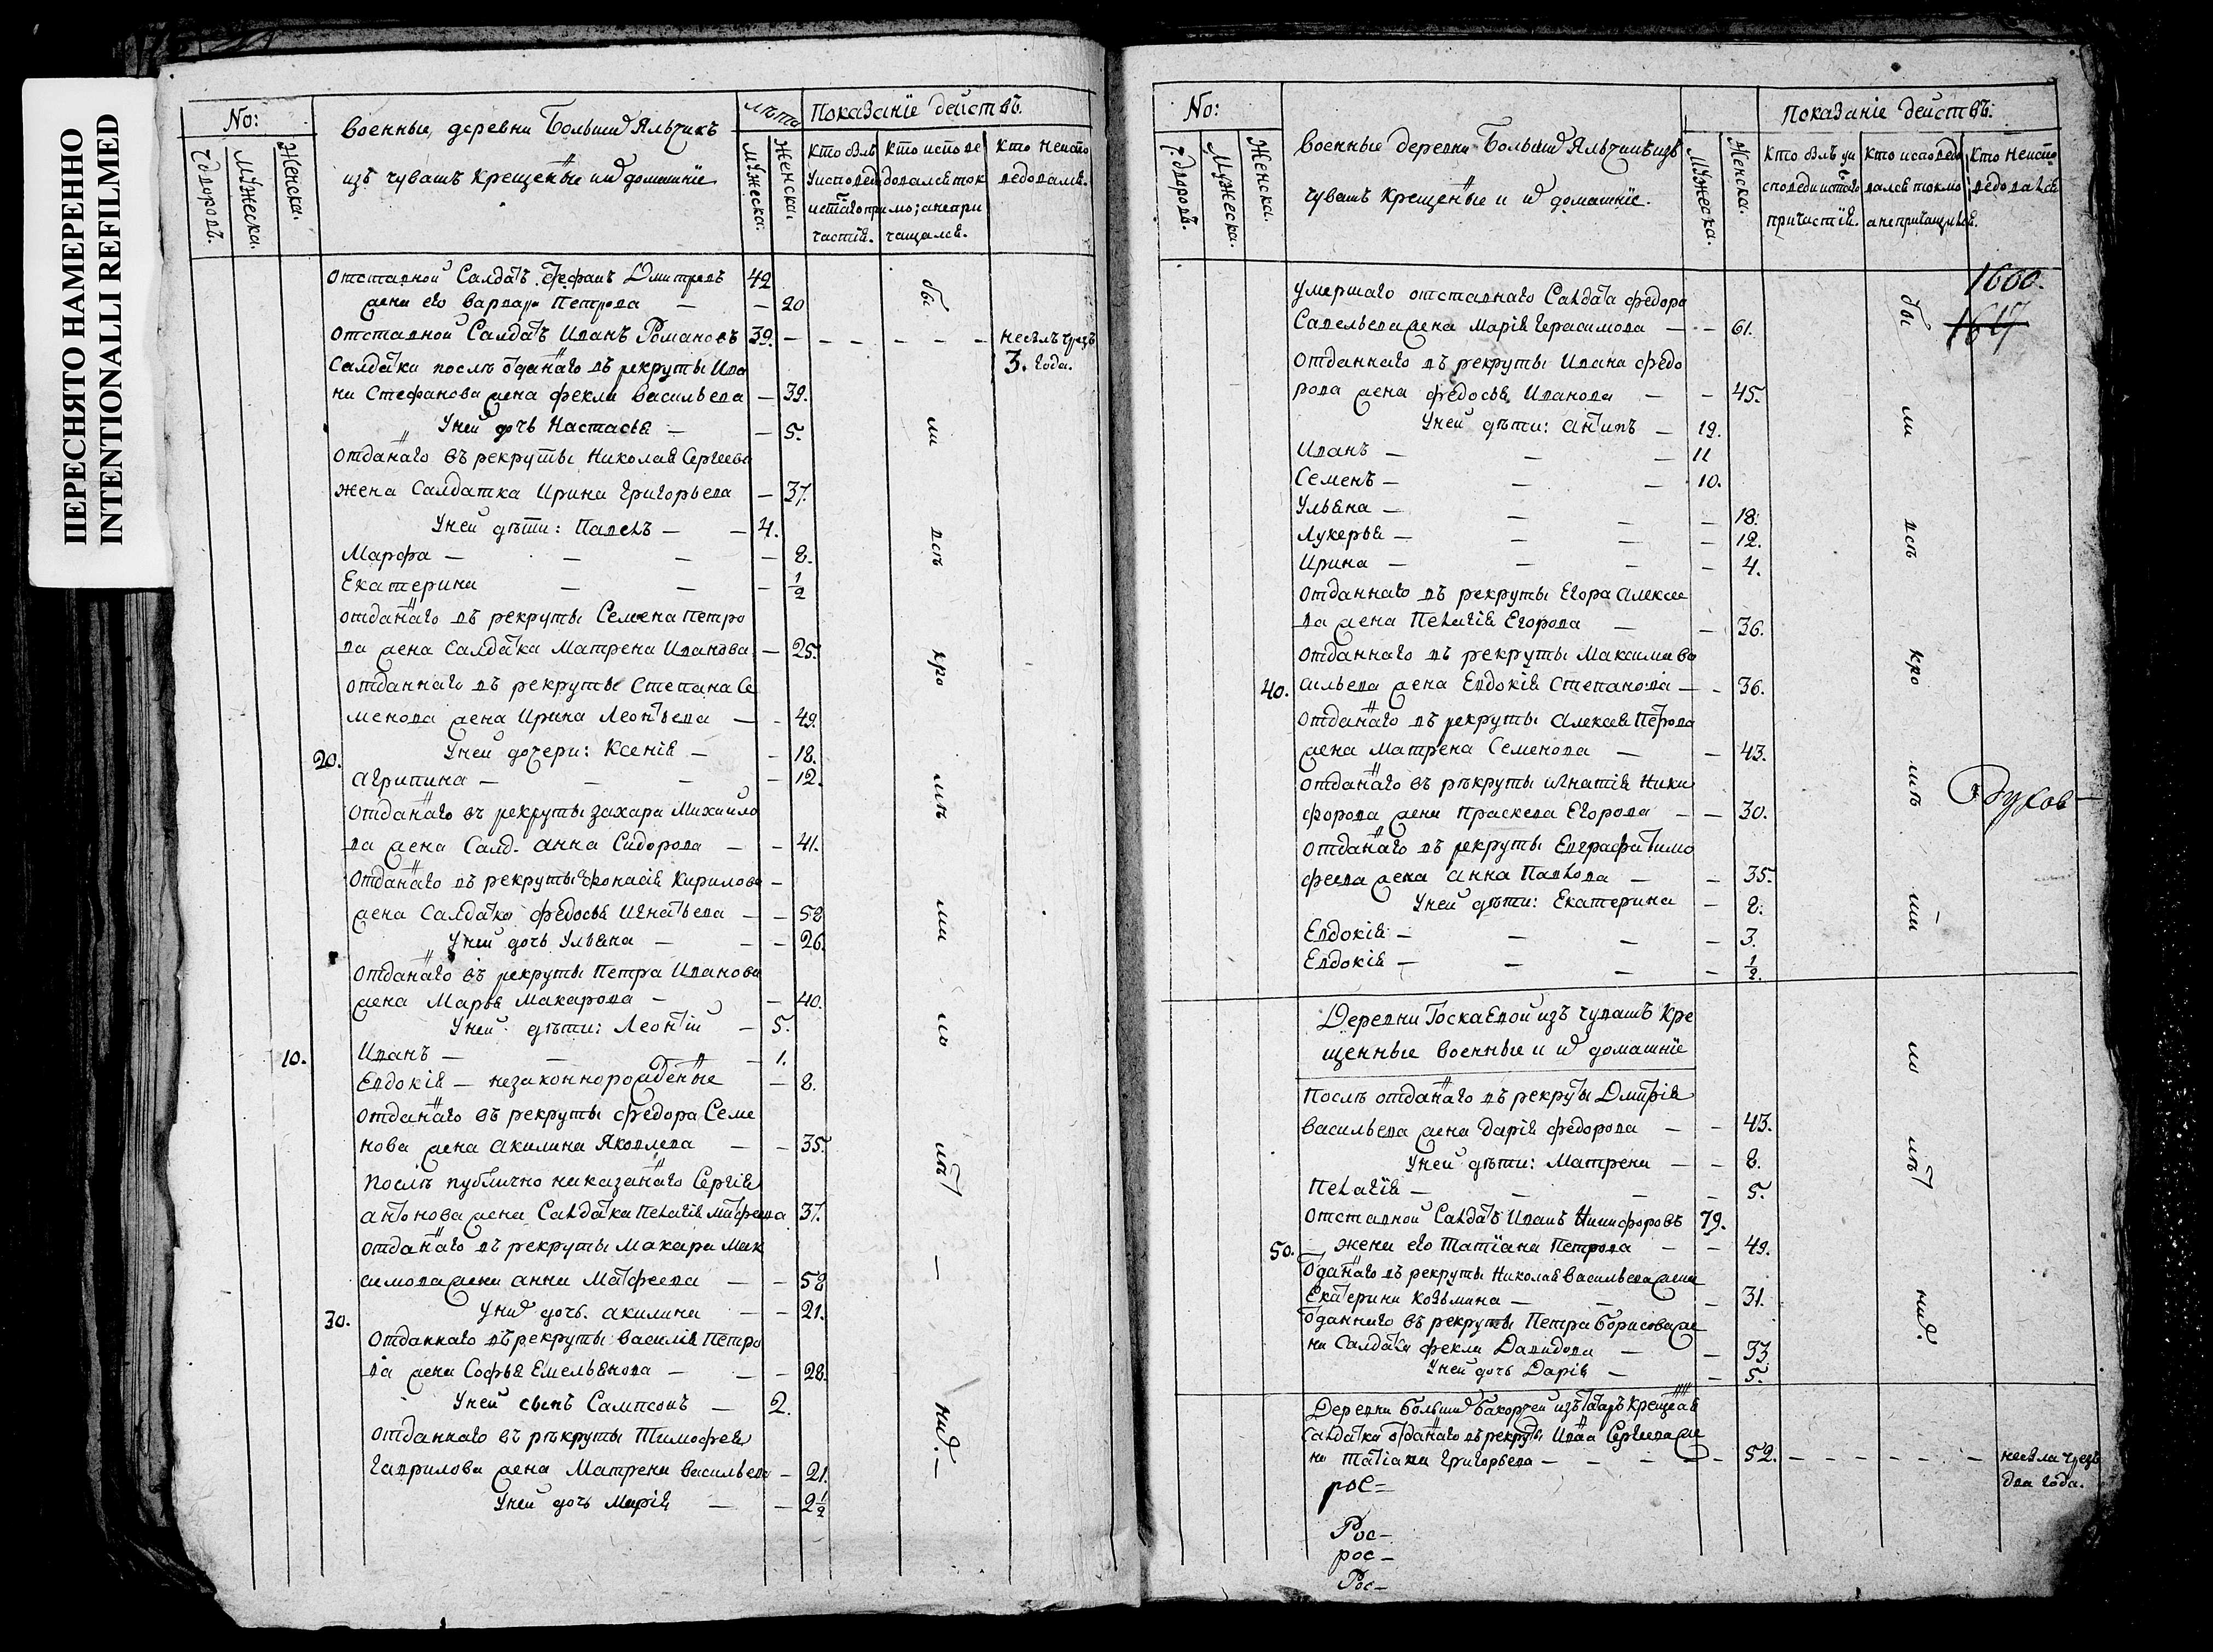 ПЕРЕСНЯТО НАМЕРЕННО
INTENTIONALLI REFILMED
No:
Чодворовъ.
Мужеска.
Женска.
Военные, деревни Большихъ Яльчикъ
изъ чувашъ крещенные ихъ домашніе
лѣта
Мужеска.
Женска.
Показаніе действъ.
Кто былъ
у исповеди
и стаго при
частія.
кто исповѣ
довался ток
мо; а непри
чащался.
кто неиспо
ведовался.
отставной Салдатъ Стефанъ Дмитревъ 42
жена его Варвара Петрова — — 20
отставной Салдатъ Иванъ Романовъ 39. — — — — — — небылъ чрезъ
3. года.
Салдатка послѣ отданнаго въ рекруты Ива
на Стефанова жена Фекла Васильева — 39.
У ней дочь Настасья — — 5.
отданнаго въ рекруты Николая Сергеева
жена Салдатка Ирина Григорьева — 37.
У ней дѣти: Павелъ — — 4.
Марфа — — — — 8.
Екатерина — — — 1/2
отданнаго въ рекруты Семена Петро
ва жена Салдатка Матрена Иванова — 25.
отданнаго въ рекруты Степана Се
менова жена Ирина Леонтьева — - 49.
20. У ней дочери: Ксенія — - 18.
Агрипина — — — — 12.
отданнаго въ рекруты Захара Михайло
ва жена Салд. Анна Сидорова — - 41.
отданнаго въ рекруты Афонасія Кирилова —
жена Салдатка Федосья Игнатьева — - 58
У ней дочь Ульяна — — - 26.
отданнаго въ рекруты Петра Иванова
жена Марья Макарова — — 40.
У ней дѣти: Леонтій — 5.
10. Иванъ — — — 1.
Евдокія — незаконнорожденные — 8.
отданнаго въ рекруты Федора Семе
нова жена Акилина Яковлева — - 35.
Послѣ публично наказаннаго Сергія
Антонова жена Салдатка Пелагія Матфеева 37.
отданнаго въ рекруты Макара Мак
симова жена Анна Матфеева — - 58
30. У ней дочь Акилина — - 21.
отданнаго въ рекруты Василія Петро
ва жена Софья Емельянова — — - 28.
У ней сынъ Сампсонъ — 2.
отданнаго въ рекруты Тимофея
Гаврилова жена Матрена Васильева - 21.
У ней дочь Марія — — 2 1/2
бы
ли
всѣ
кро
мѣ
ма
ло
лѣт
—
нихъ. —
No:
Чодворовъ.
Мужеска.
Женска.
Военные деревни Большихъ Яльчикъ изъ
чувашъ крещенные и ихъ домашніе.
Мужеска.
Женска.
Показаніе действъ:
Кто былъ уи
споведи и стаго
причастія.
кто исповедо
вался токмо
а непричащался.
Кто неиспо
ведовался
1600.
1617
умершаго отставнаго Салдата Федора
Савельева жена Марія Герасимова — - 61.
отданнаго въ рекруты Ивана Федо
рова жена Федосья Иванова — - 45.
У ней дѣти: Антипъ — 19.
Иванъ — — — 11
Семенъ — — — 10.
Ульяна — — — — 18.
Лукерья — — — — 12.
Ирина — — — — 4.
отданнаго въ рекруты Егора Алексее
ва жена Пелагія Егорова — — 36.
отданнаго въ рекруты Максима Ва
40. сильева жена Евдокія Степанова — - 36.
отданнаго въ рекруты Алексея Петрова
жена Матрена Семенова — — 43.
отданнаго въ рѣкруты Игнатія Ники
форова жена Праскева Егорова — — 30.
отданнаго въ рекруты Евграфа Тимо
феева жена Анна Павлова — — 35.
У ней дѣти: Екатерина — 8.
Евдокія — — — — 3.
Евдокія — — — — 1/2.
Деревни Тоскаевой изъ чувашъ кре
щенные военные и ихъ домашніе
Послѣ отданнаго въ рекруты Дмитрія
Васильева жена Дарія Федорова — - 43.
У ней дѣти: Матрена — - 8.
Пелагія — — — — 5.
отставной Салдатъ Иванъ Никифоровъ 79.
50. — жена его Татіана Петрова — - 49.
отданнаго въ рекруты Николая Васильева жена
Екатерина Козьмина — — — 31.
отданнаго въ рекруты Петра Борисова же
на Салдатка Фекла Давидова — — 33.
У ней дочь Дарія — — 5.
Деревни Большихъ Бакорчей изъ татаръ крещеная
Салдатка отданнаго въ рекруты Ивана Сергеева же
на Татіана Григорьева — — — — 52. — — — — — — небыла чрезъ
два года.
рос=
Рос—
рос—
Рос—
бы
ли
всѣ
кро
мѣ
ма
ло
лѣт
нихъ.